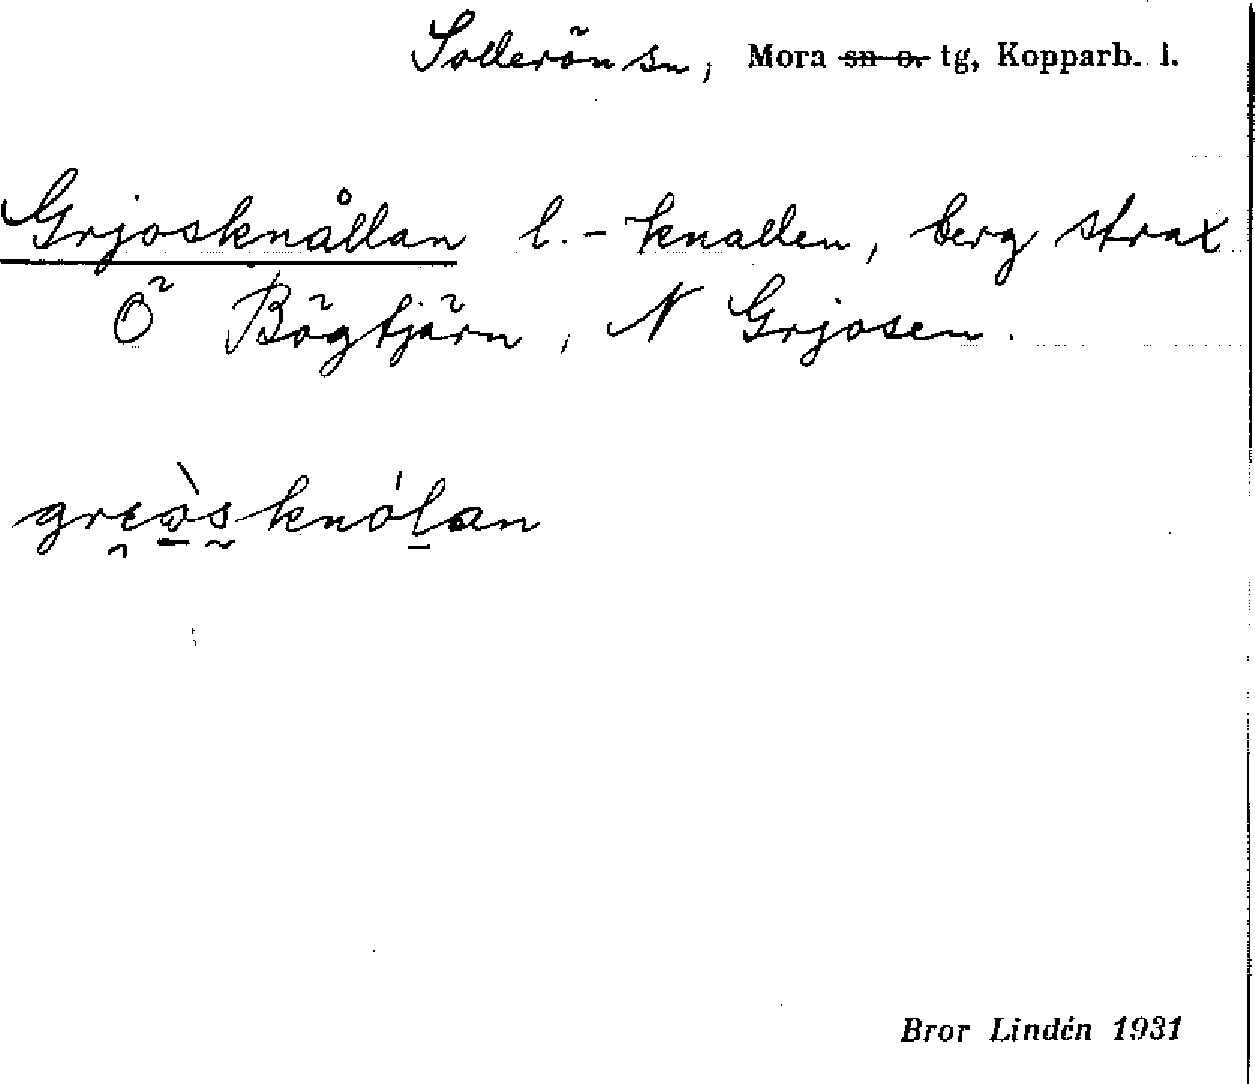 Sollerön sn, Mora sn o. tg, Kopparb. l.
Grjosknållan l. -knallen, berg strax
Ö Bögtjärn, N Grjosen.
greòsknólan
Bror Lindén 1931